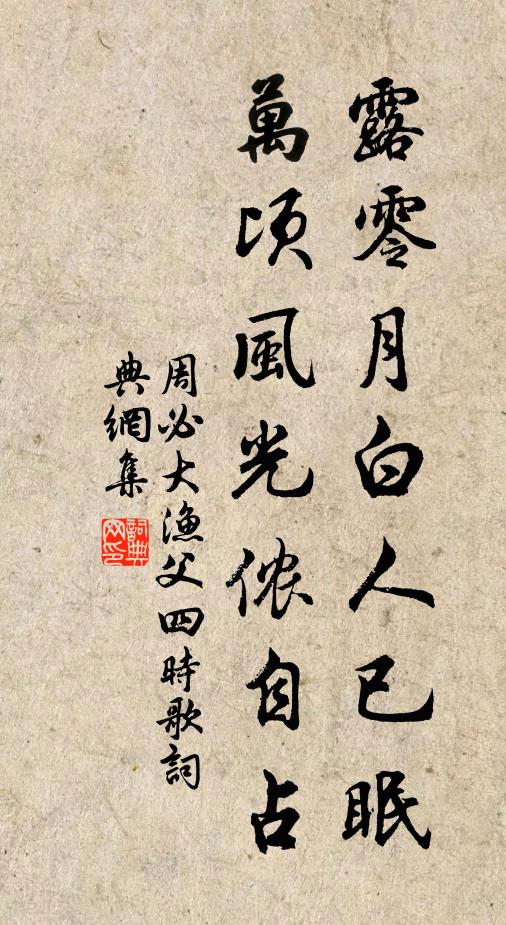 露零月白人已眠
萬頃風光侬自占
周必大漁父四時歌詞
典網集
詞典網印